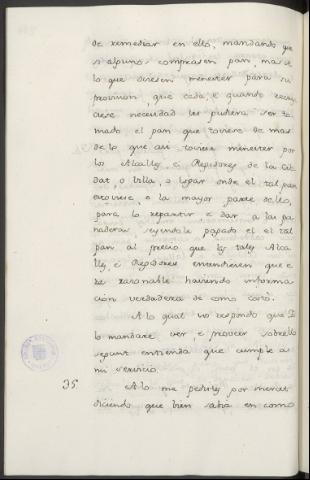 de remediar en ello, mandando que
si algunos comprasen pan, mas de
lo que oviesen menester para su
provision, que cada, e quando recre
ciese necesidad les pudiera ser to
mado el pan que toviere de mas
de lo que asi toviere menester por
los Alcalles, é Regidores de la Cib
dat o Villa, o logar onde el tal pan
estoviere, o la mayor parte dello,
para lo repartir e dar a las pa
naderas seyendole pagado el tal
pan al precio que los tales Alca
lles, é Regidores entendiesen que e
ra rasonable haviendo informa
cion verdadera de como costó.
A lo qual vos respondo que Yo
lo mandaré ver, e proveer sobrello
segunt entienda que cumple a
mi servicio.
35 A lo que me pedistes por merced
diciendo que bien sabia en como